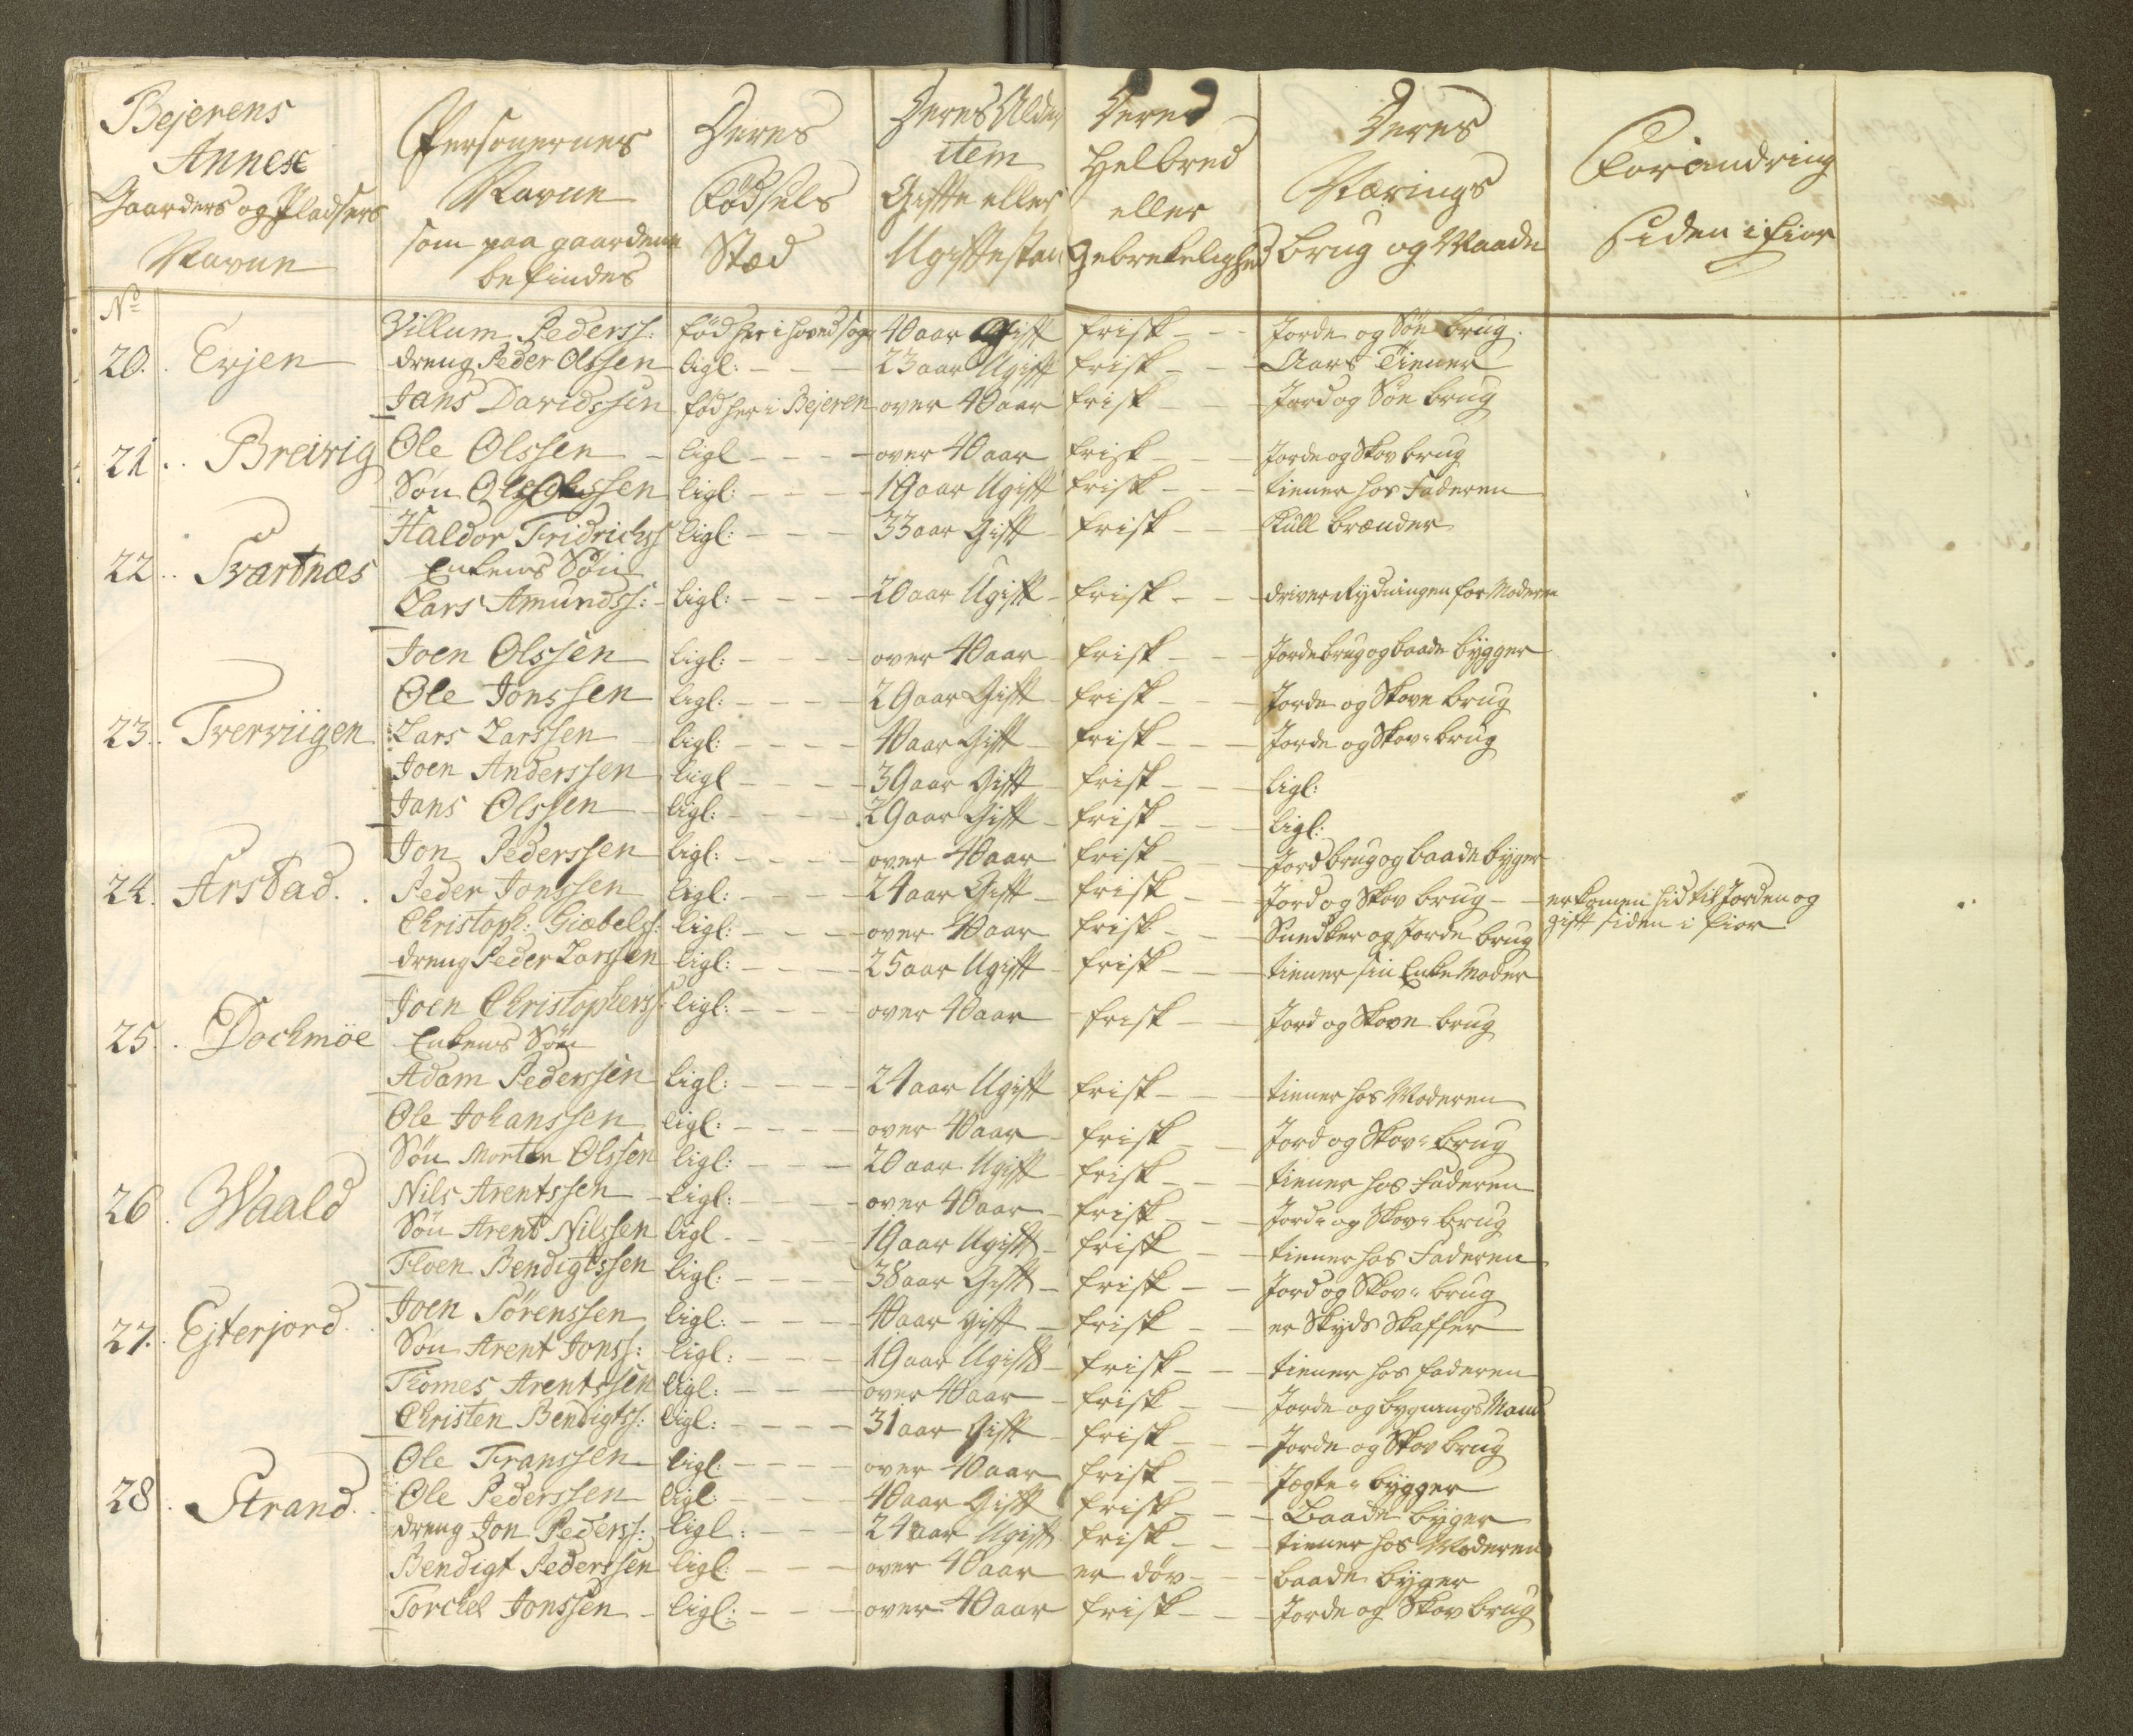 Bejerens Annex Gaarders og Pladsers Navne | Personernes Navne som paa gaardene befindes | Deres Födsels Stæd | Deres Alder item Gifte eller Ugifte stan | Deres Helbred eller Gebrekelighed | Deres Nærings brug og Maade | Forandring siden i fior
No
20. Evjen | Villum Pederss: | föd her i hoved sogn | 40 aar Gift | frisk | Jorde og Söe brug
dreng Peder Olssen | ligl: | 23 aar Ugift | frisk | Aars Tiener
Jans Davidssen | föd her i Bejeren | over 40 aar | frisk | Jord og Söe brug
21. Breivig | Ole Olssen | ligl | over 40 aar | frisk | Jorde og Skov brug
Sön Ole Olssen | ligl: | 19 aar Ugift | frisk | tiener hos Faderen
22. Svartnæs | Haldor Fridrichss | ligl: | 33 aar Gift | frisk | Kull brænder
Enkens Sön
Lars Amundss: | ligl: | 20 aar Ugift | frisk | driver Rydningen for Moderen
Joen Olssen | ligl: | over 40 aar | frisk | Jordebrug og baade bygger
Ole Jonssen | ligl: | 29 aar Gift | frisk | Jorde og Skove brug
23. Tverviigen | Lars Larssen | ligl: | 40 aar Gift | frisk | Jorde og Skov brug
Joen Anderssen | ligl | 39 aar Gift | frisk | ligl:
Jans Olssen | ligl: | 29 aar Gift | frisk | ligl:
Jon Pederssen | ligl: | over 40 aar | frisk | Jord brug og baade byger
24. Arstad | Peder Jonssen | ligl: | 24 aar Gift | frisk | Jord og Skov brug | er komen hid til Jorden og
Christoph: Giæbelss: | ligl: | over 40 aar | frisk | Snedker og Jorde brug | gift siden i fior
dreng Peder Larssen | ligl: | 25 aar Ugift | frisk | tiener sin Enke Moder
Joen Christopherss: | ligl: | over 40 aar | frisk | Jord og Skove brug
25. Dochmöe | Enkens Sön
Adam Pederssen | ligl: | 24 aar Ugift | frisk | tiener hos Moderen
Ole Johanssen | ligl: | over 40 aar | frisk | Jord og Skov brug
Sön Morten Olssen | ligl: | 20 aar Ugift | frisk | tiener hos Faderen
26. Waald | Nils Arentssen | ligl: | over 40 aar | frisk | Jord og Skov brug
Sön Arent Nilssen | ligl | 19 aar Ugift | frisk | tiener hos Faderen
Floen Bendigtssen | ligl: | 38 aar Gift | frisk | Jord og Skov brug
27. Ejterjord | Joen Sörenssen | ligl: | 40 aar gift | frisk | er Skyds Skaffer
Sön Arent Jonss: | ligl: | 19 aar Ugift | frisk | tiener hos faderen
Tomes Arentssen | ligl: | over 40 aar | frisk | Jorde og bygnings Mand
Christen Bendigtss: | ligl: | 31 aar Gift | frisk | Jorde og Skov brug
28. Strand | Ole Franssen | ligl: | over 40 aar | frisk | Jægte bygger
Ole Pederssen | ligl: | 40 aar Gift | frisk | Baade byger
dreng Jon Pederss: | ligl: | 24 aar Ugift | frisk | tiener hos Moderen
Bendigt Pederssen | ligl: | over 40 aar | er döv | baade byger
Torchel Jonssen | ligl: | over 40 aar | frisk | Jorde og Skov brug